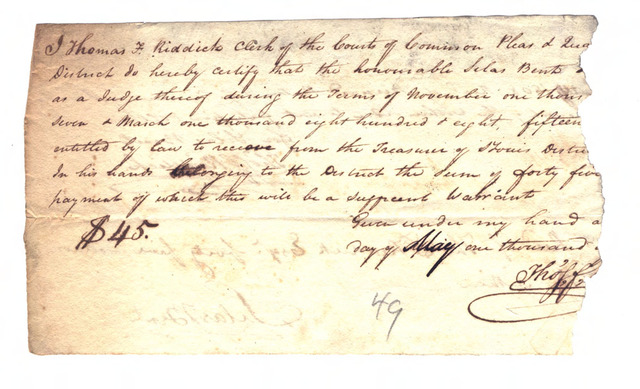 I Thomas F Riddick Clerk of the Courts of Common Pleas & Qua
District do hereby certify that the honourable Silas Bent
as a Judge thereof during the Terms of November one thous
seven & March one thousand eight hundred & eight, fifteen
entitled by law to receive from the Treasurer of St Louis Distri
In his hands belonging to the District the Sum of forty five
payment of which this will be a sufficent Warrant
Given under my hand a
$45. day of May one thousand
Thos F
49
Silas Bent